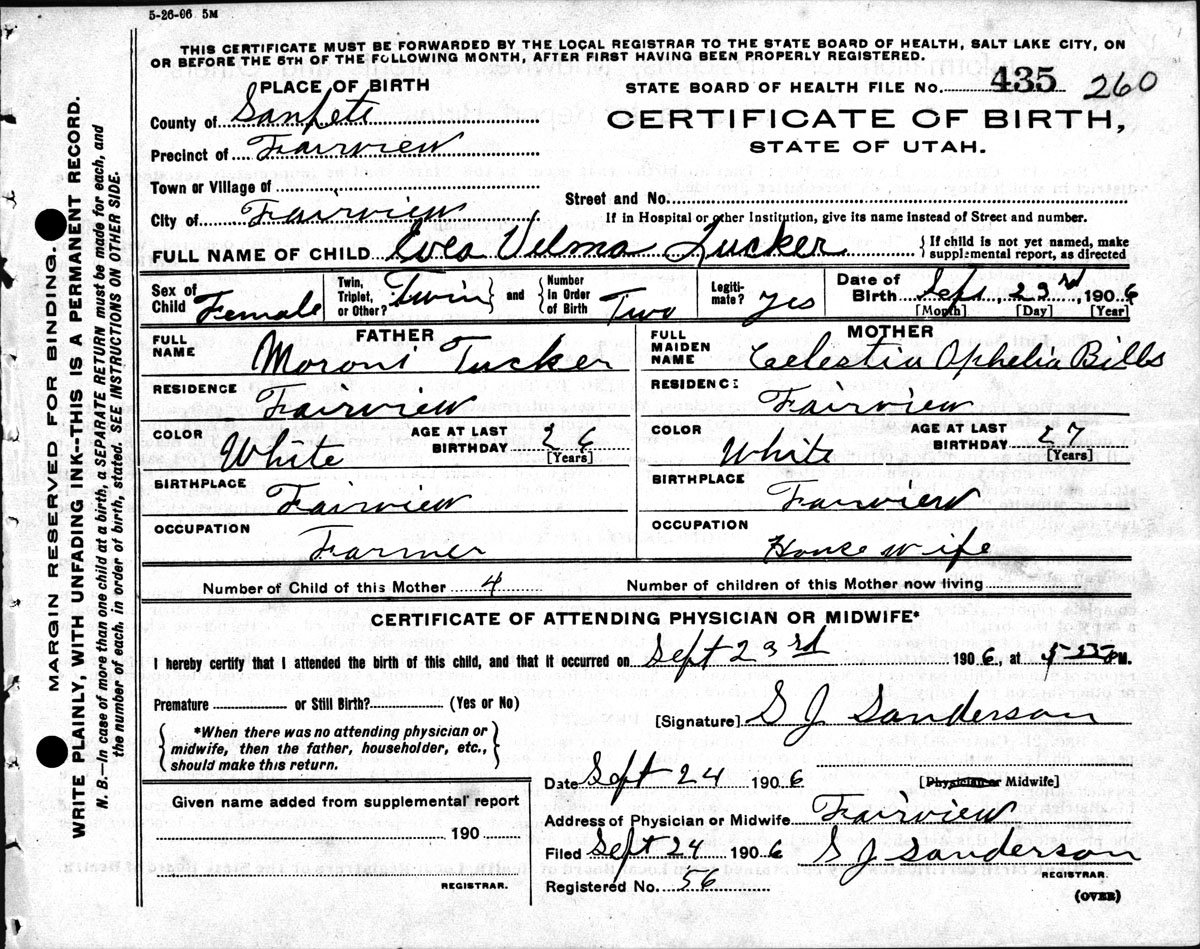 5-26-06 5M
THIS CERTIFICATE MUST BE FORWARDED BY THE LOCAL REGISTRAR TO THE STATE BOARD OF HEALTH, SALT LAKE CITY, ON
OR BEFORE THE 5TH OF THE FOLLOWING MONTH, AFTER FIRST HAVING BEEN PROPERLY REGISTERED.
PLACE OF BIRTH
STATE BOARD OF HEALTH FILE No. 435 260
County of Sanpete
CERTIFICATE OF BIRTH,
Precinct of Fairview
STATE OF UTAH.
Town or Village of
Street and No.
City of Fairview
If in Hospital or other Institution, give its name instead of Street and number.
FULL NAME OF CHILD Velma Tucker
{If child is not yet named, make
supplemental report, as directed
Sex of Child Female
Twin, Triplet, or Other? Twin} and {Number in Order of Birth Two
Legiti-mate? Yes
Date of Birth Sept, 23rd, 1906
[Month] [Day] [Year]
FATHER
FULL NAME Moroni Tucker
MOTHER
FULL MAIDEN NAME Celestia Ophelia
RESIDENCE Fairview
RESIDENCE Fairview
COLOR White AGE AT LAST BIRTHDAY [Years]
COLOR White AGE AT LAST BIRTHDAY 27 [Years]
BIRTHPLACE Fairview
BIRTHPLACE Fairview
OCCUPATION Farmer
OCCUPATION House wife
Number of Child of this Mother 4 Number of children of this Mother now living
CERTIFICATE OF ATTENDING PHYSICIAN OR MIDWIFE*
I hereby certify that I attended the birth of this child, and that it occurred on Sept 23rd 1906, at M.
Premature or Still Birth? (Yes or No)
[Signature] S J Sanderson
{*When there was no attending physician or
midwife, then the father, householder, etc.,
should make this return.}
Date Sept 24 1906 [Physician or Midwife]
Given name added from supplemental report
190
REGISTRAR.
Address of Physician or Midwife Fairview
Filed Sept 24 1906 S J Sanderson
REGISTRAR.
Registered No. 56
(OVER)
MARGIN RESERVED FOR BINDING.
WRITE PLAINLY, WITH UNFADING INK--THIS IS A PERMANENT RECORD.
N. B.—In case of more than one child at a birth, a SEPARATE RETURN must be made for each, and
the number of each, in order of birth, stated. SEE INSTRUCTIONS ON OTHER SIDE.